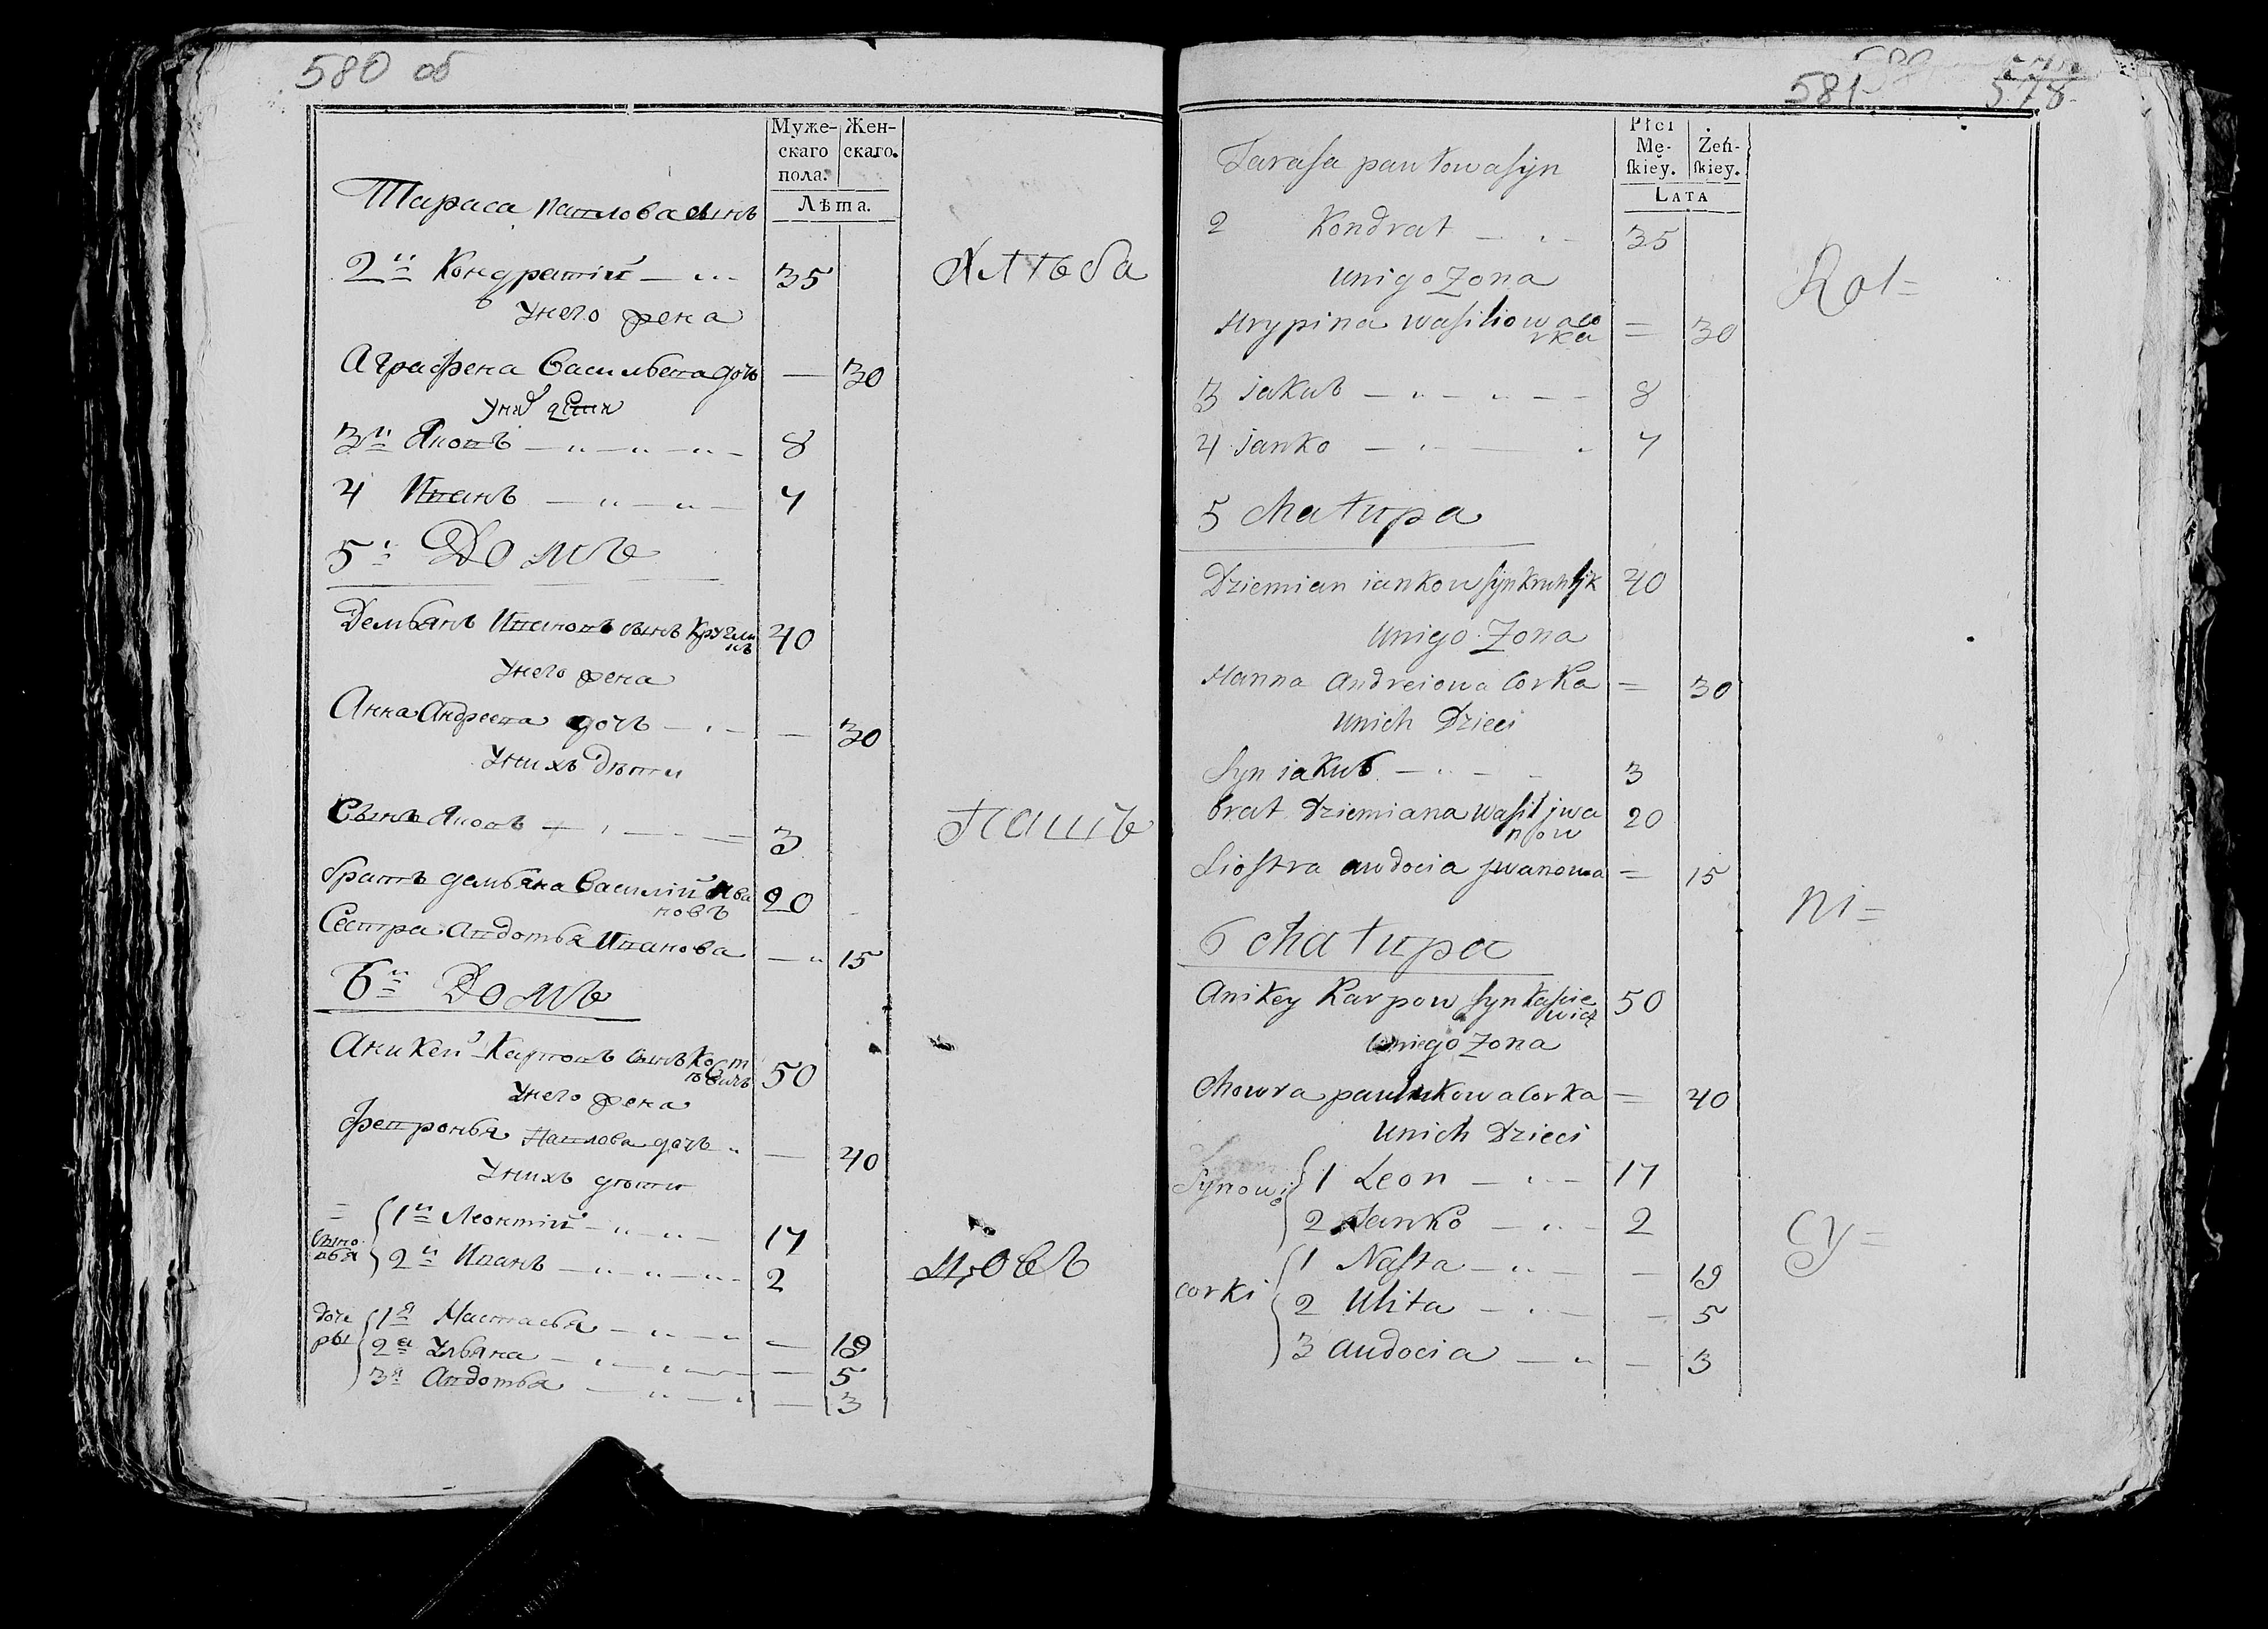 580 об
Муже- Жен-
скаго скаго.
пола.
Лѣта.
Тараса павлова сынъ
2й Кондратій 35
У него жена
Аграфена Васильева дочь — 30
У них дѣти
3й Яковъ 8
4 Иванъ 7
5й Домъ
Демьянъ Ивановъ сынъ Кругли
къ 40
У него жена
Анна Андреева дочъ — 30
У нихъ дѣти
Сынъ Яковъ 3
братъ демьяна Василій Ива
новъ 20
Сестра Авдотья Иванова — 15
6й Домъ
Аникей Карповъ сынъ 50
У него жена
Февронья Павлова дочь — 40
У нихъ дѣти
Сыно
вья
1й Леонтій 17
2й Иванъ 2
доче
ры
1я Настасья — 19
2я Ульяна — 5
3я Авдотья — 3
Хлѣба
пашъ
цовъ
581 578
Płci
Mę- Żeń-
skiey. skiey.
LATA
Tarasa pawkowa syn
2 Kondrat 35
unigo Zona
Hrypina wasiliowa co
rka = 30
3 iakub 8
4 ianko 7
5 chatupa
Dziemian iankow syn kruhlik 40
unigo Zona
Hanna andreiowa Corka = 30
unich Dzieci
Syn iakub 3
brat Dziemiana wasil jwa
now 20
Siostra audocia jwanowa = 15
6 chatupa
Anikey Karpow syn 50
uniego Zona
chowra pawlukowa Corka = 40
unich Dzieci
Synowi
1 Leon 17
2 Janko 2
corki
1 Nasta — 19
2 Ulita — 5
3 audocia — 3
Rol=
ni=
cy=